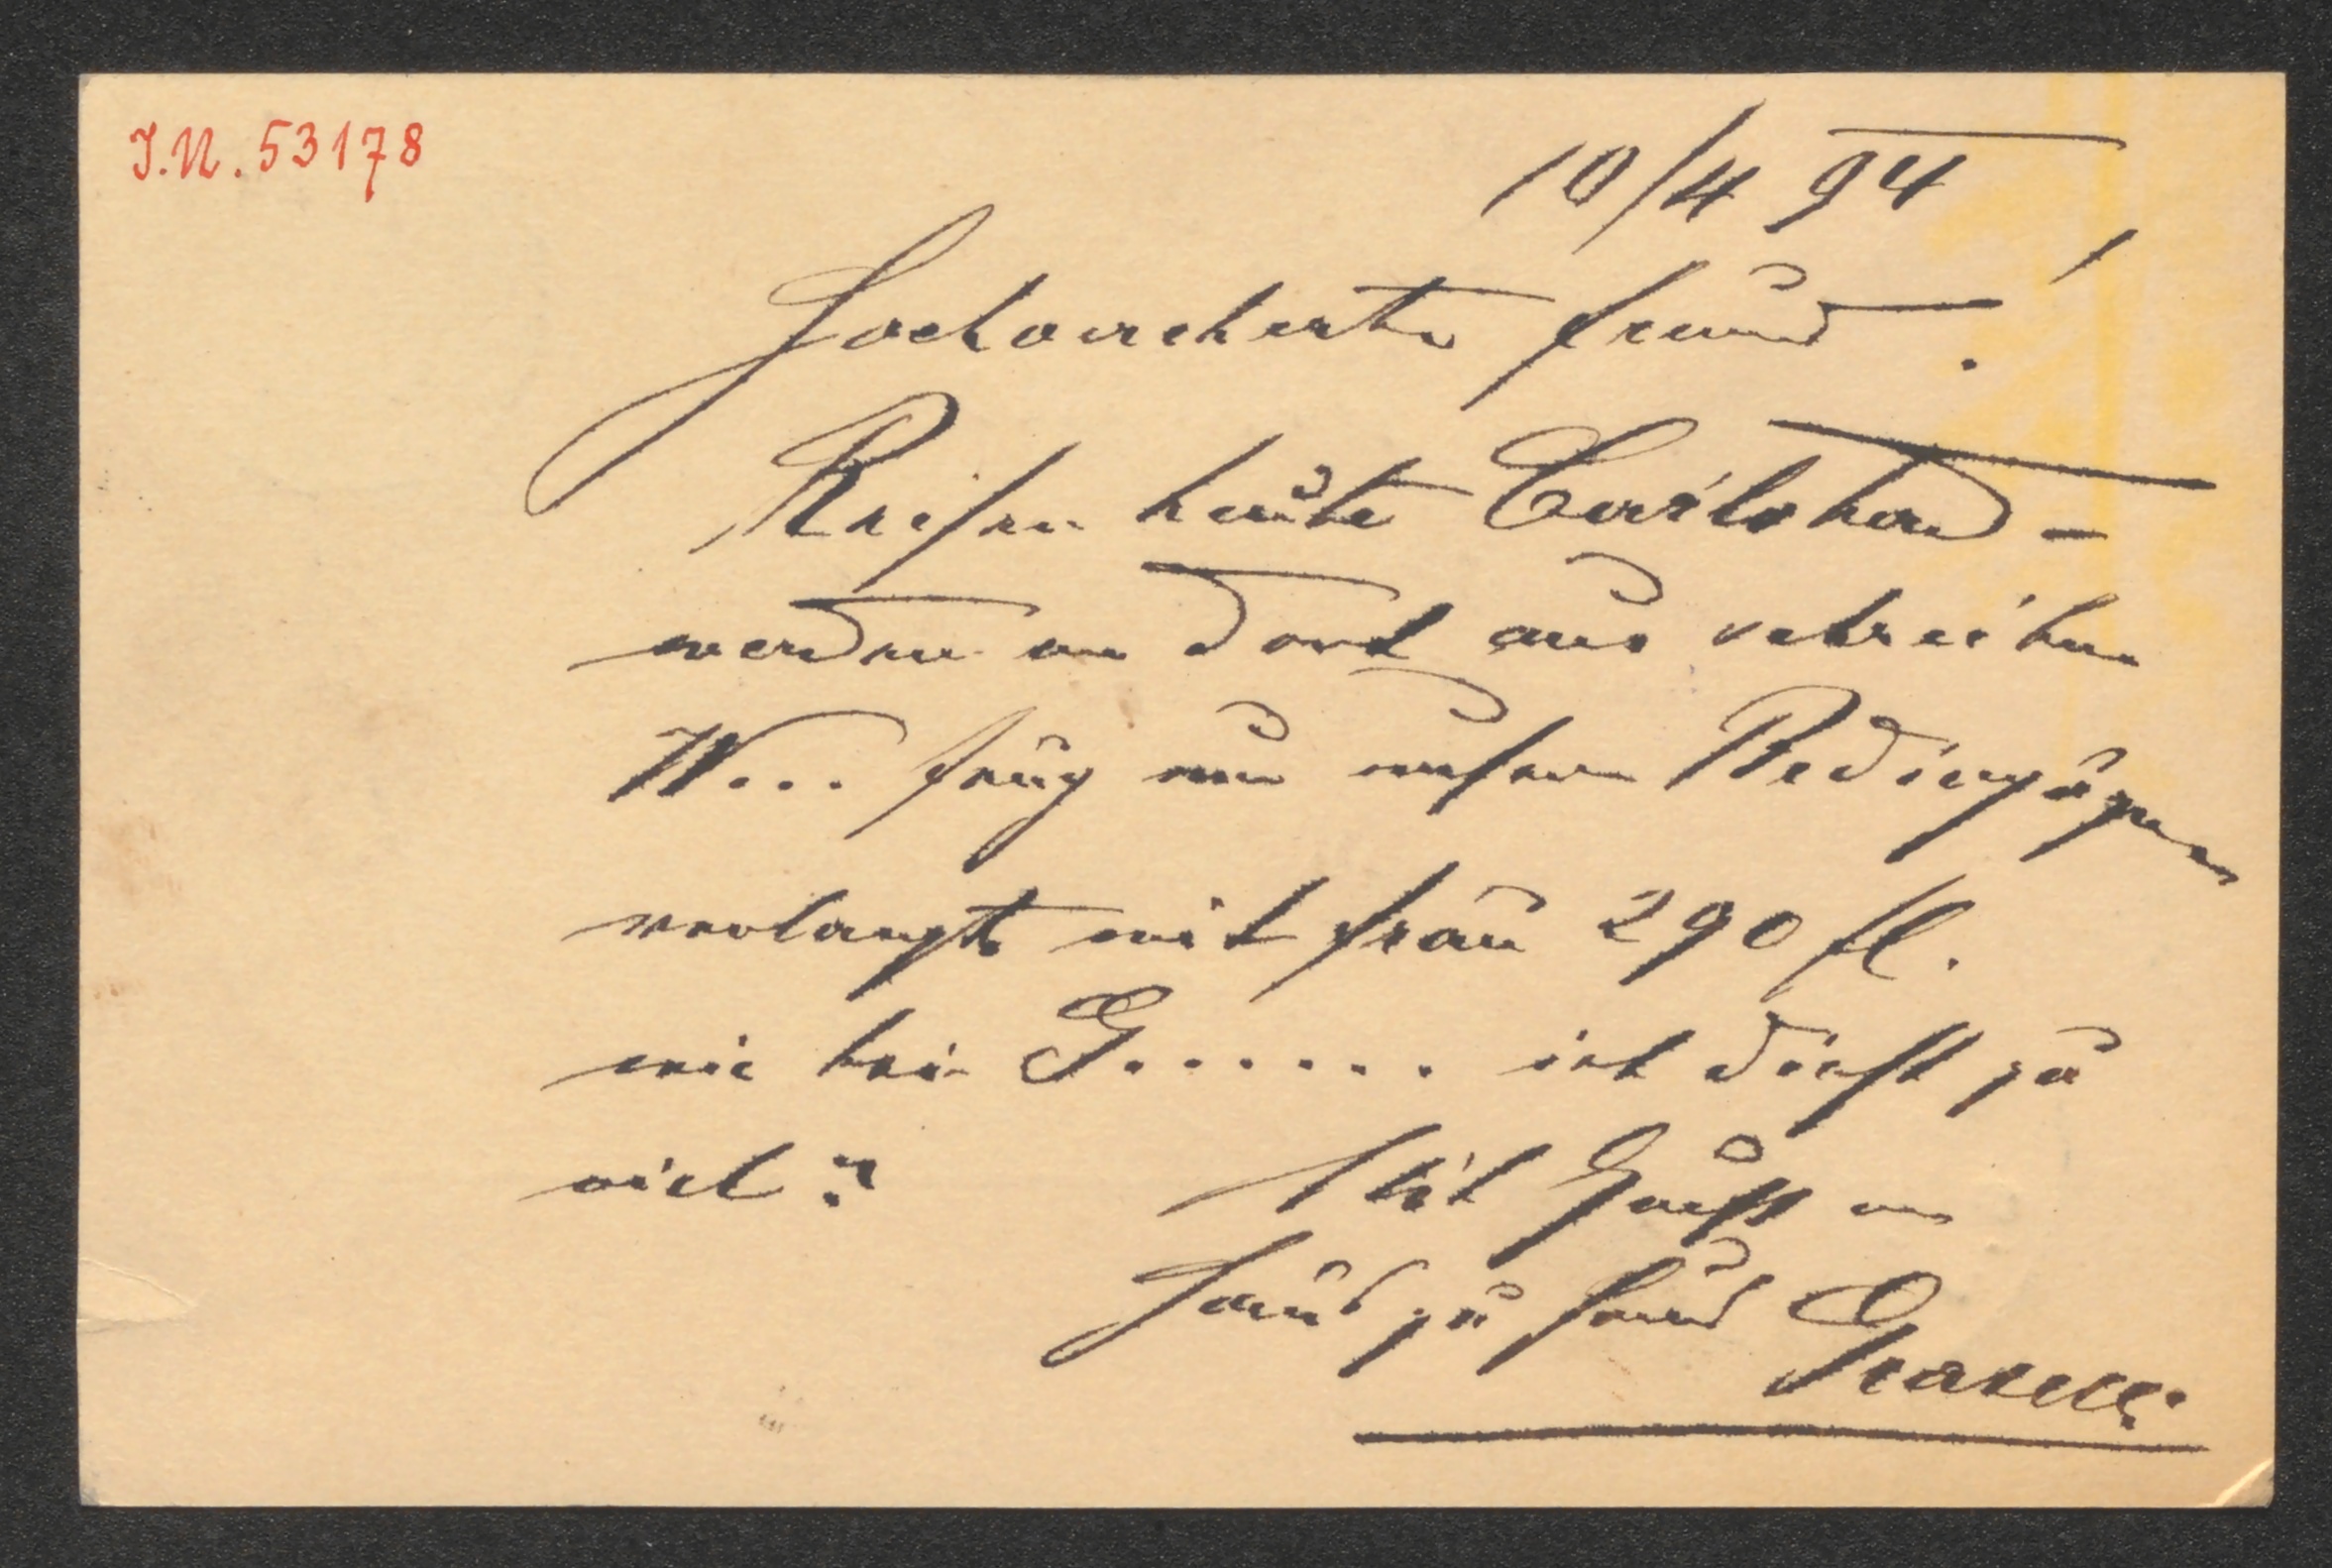 I.N. 53178
10/4 94
Hochverehrter Freund!
Reisen heute Carlsbad –
werden von dort aus schreiben
W... frug um unsere Bedingungen
verlangte mit Frau 290 fl.
wie bei G....... ist dieß zu
viel?
Mit Gruß von
Haus zu Haus